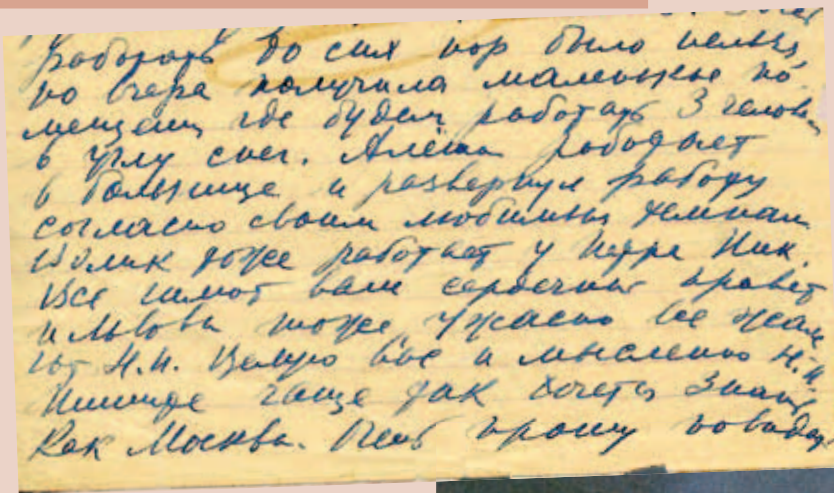 работать до сих пор было нельзя
но вчера получила маленькое по
мещение где будем работать 3 челове
в углу снег. Алеша работает
в больнице и развернул работу
согласно своим любимым темпам
Шолик тоже работает у Петра Ник.
Все шлют вам сердечный привет
и Львовы тоже ужасно все жал
Н.И. Целую вас и мысленно Н.И.
Пишите чаще так хочется знать
Как Москва. Очень прошу